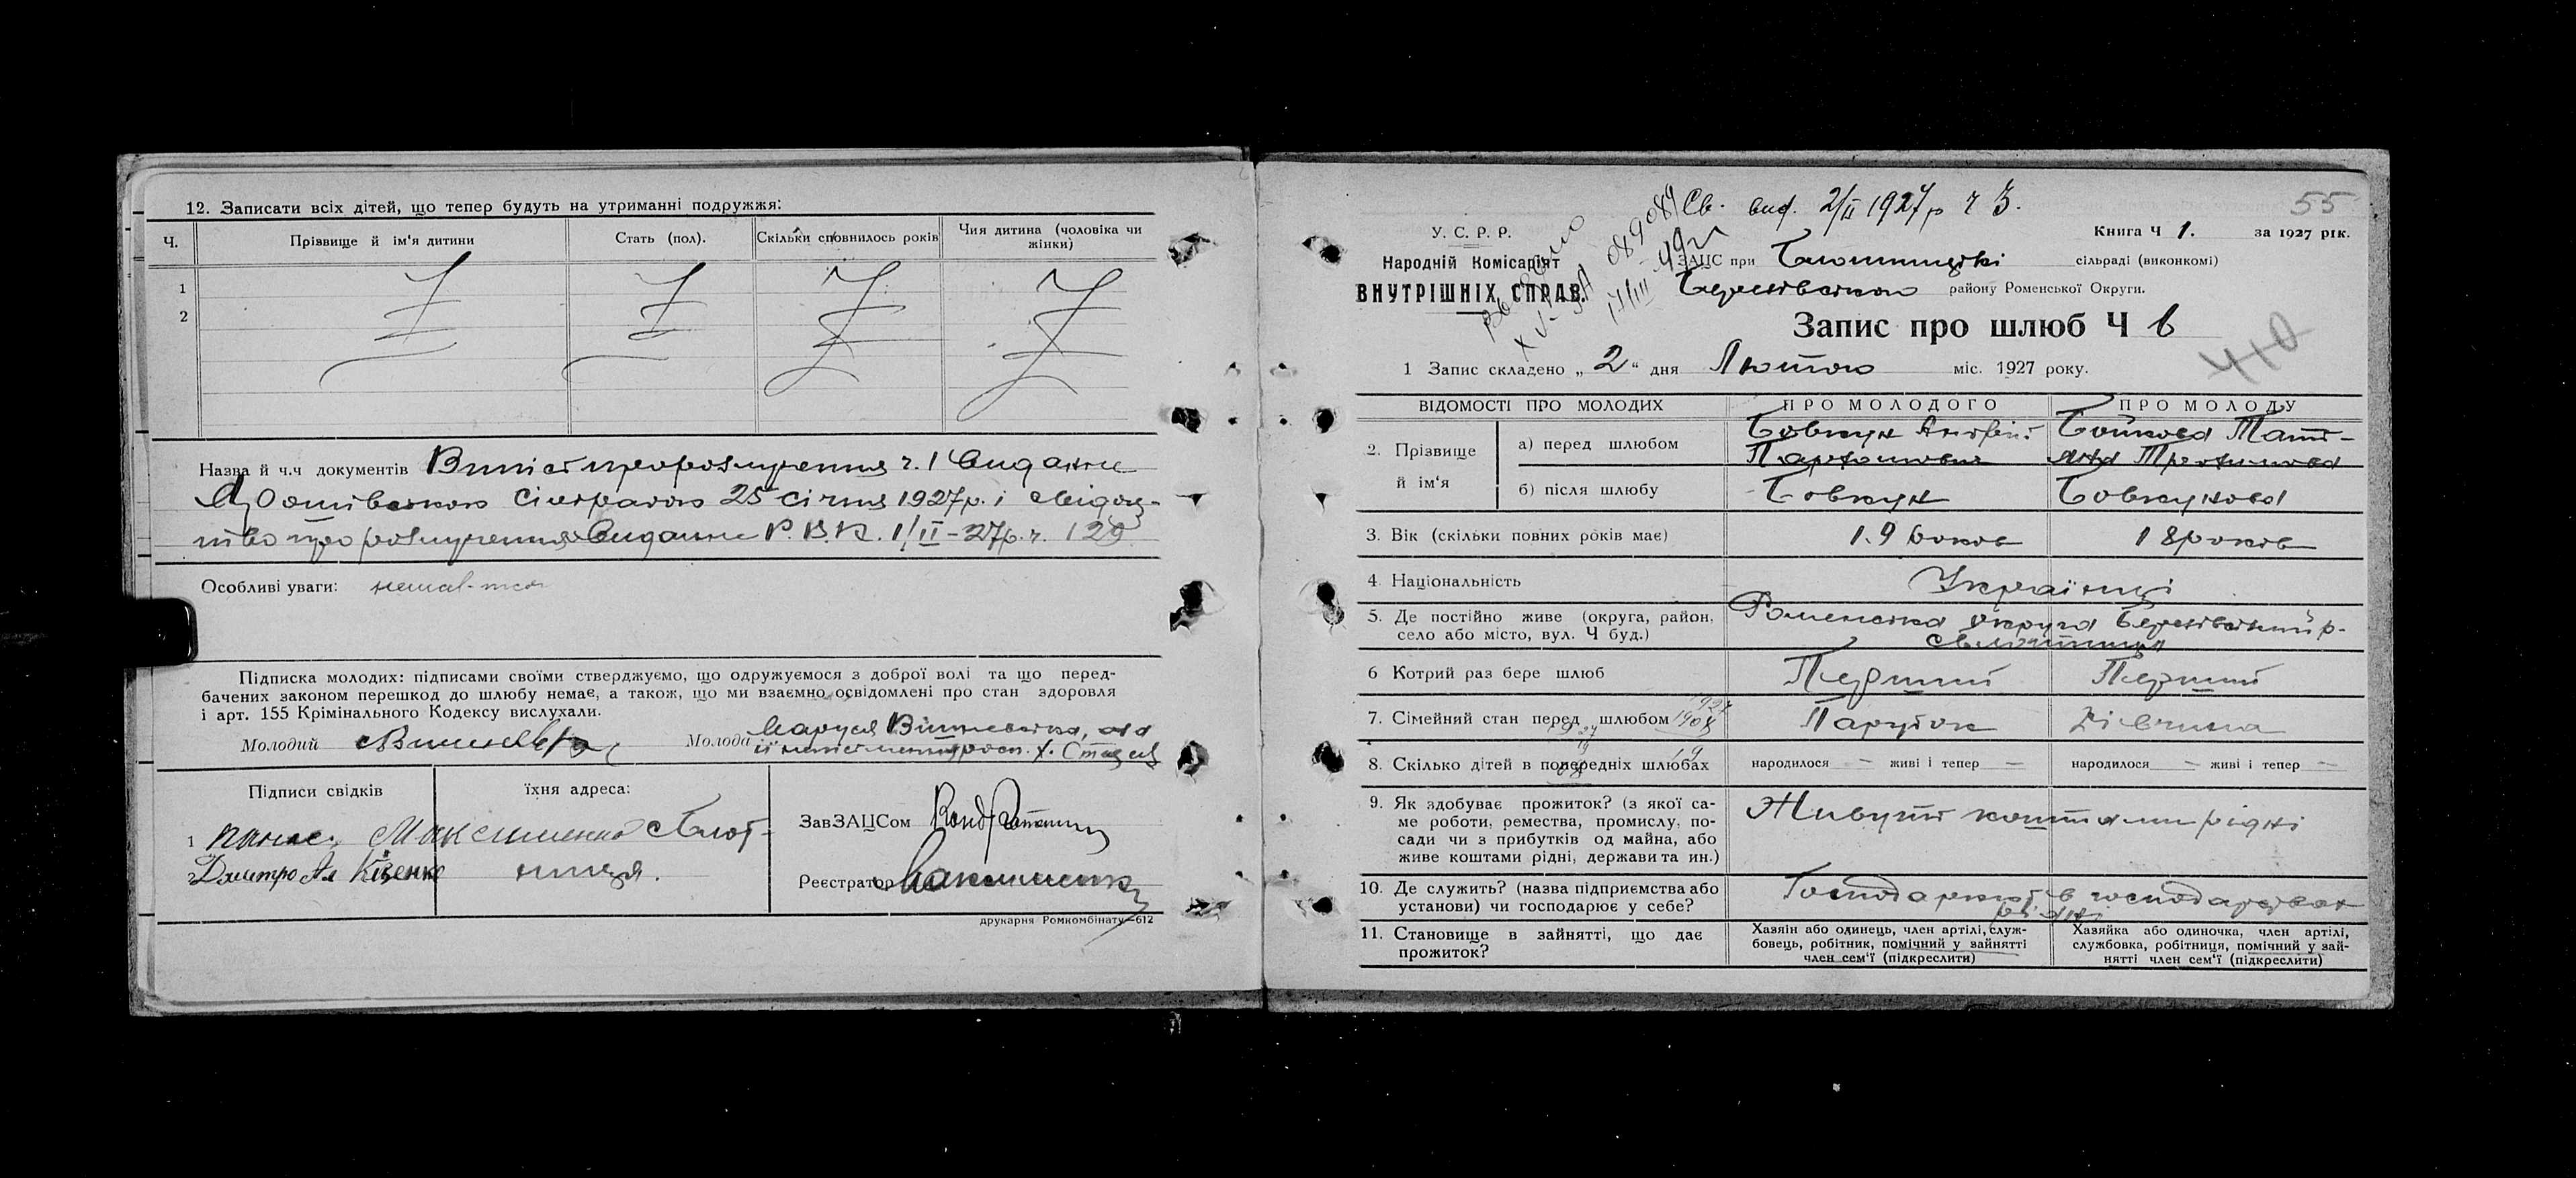 12. Записати всіх дітей, що тепер будуть на утриманні подружжя:
Ч. Прізвище й ім'я дитини Стать (пол). Скільки сповнилось років Чия дитина (чоловіка чи жінки)
1
2
Назва й ч.ч документів Витяг про розлучення ч. 1 Видании
сілрадою 25 січня 1927р. і свідоц-
тво про розлучення Видании Р.В.К. 1/II-27р. ч. 129
Особливі уваги: немає
Підписка молодих: підписами своїми стверджуємо, що одружуємося з доброї волі та що перед-
бачених законом перешкод до шлюбу немає, а також, що ми взаємно освідомлені про стан здоровля
і арт. 155 Крімінального Кодексу вислухали.
Молодий Молода Маруся Вишневська, а за
її неписьменну росп. Х. Стацец
Підписи свідків їхня адреса:
1 Максименко с Блот-
2 Дмитро Ал Кізенко ниця.
ЗавЗАЦСом
Реєстратор Максименко
друкарня Ромкомбінату—612
Св. вид. 2/II 1927р ч 3.
55
089089
У. С. Р. Р.
Народній Комісаріят
ВНУТРІШНІХ СПРАВ.
Книга Ч 1. за 1927 рік.
ЗАЦС при Блотницькі сільраді (виконкомі)
району Роменської Округи.
Запис про шлюб Ч 6
410
1 Запис складено „2“ дня Лютого міс. 1927 року.
ВІДОМОСТІ ПРО МОЛОДИХ ПРО МОЛОДОГО ПРО МОЛОДУ
2. Прізвище й ім'я
а) перед шлюбом Бовкун Андрій Пархомович Бойкова Тать-яна Трохимова
б) після шлюбу Бовкун Бовкунова
3. Вік (скільки повних років має) 19 роков 18 років
4 Національність Українці
5. Де постійно живе (округа, район, село або місто, вул. Ч буд.) Роменська округа р-
с Блотниця
6 Котрий раз бере шлюб Перший Перший
7. Сімейний стан перед шлюбом Парубок Дівчина
1927
1908
19
8. Скілько дітей в попередніх шлюбах народилося — живі і тепер — народилося — живі і тепер —
9. Як здобуває прожиток? (з якої са-
ме роботи, ремества, промислу, по-
сади чи з прибутків од майна, або
живе коштами рідні, держави та ин.)
Живуть коштами рідні
10. Де служить? (назва підприємства або
установи) чи господарює у себе?
Господарюют в господарствах
рідні
11. Становище в зайнятті, що дає
прожиток?
Хазяін або одинець, член артілі, служ-
бовець, робітник, помічний у зайнятті
член сем'ї (підкреслити)
Хазяйка або одиночка, член артілі,
службовка, робітниця, помічний у зай-
нятті член сем'ї (підкреслити)